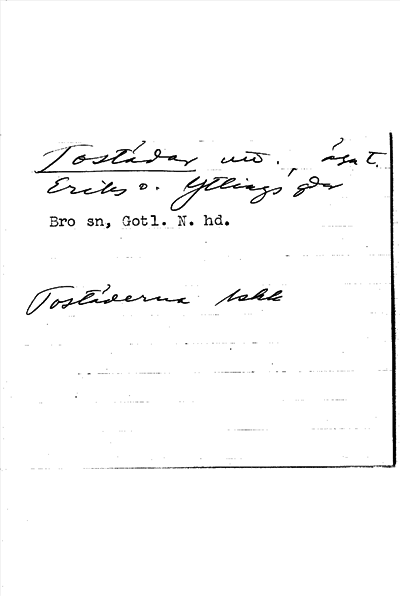 Tostädar utd., äga t.
Eriks o. Ytlings gdr
Bro sn, Gotl. N. hd.
Tostäderna 1skk